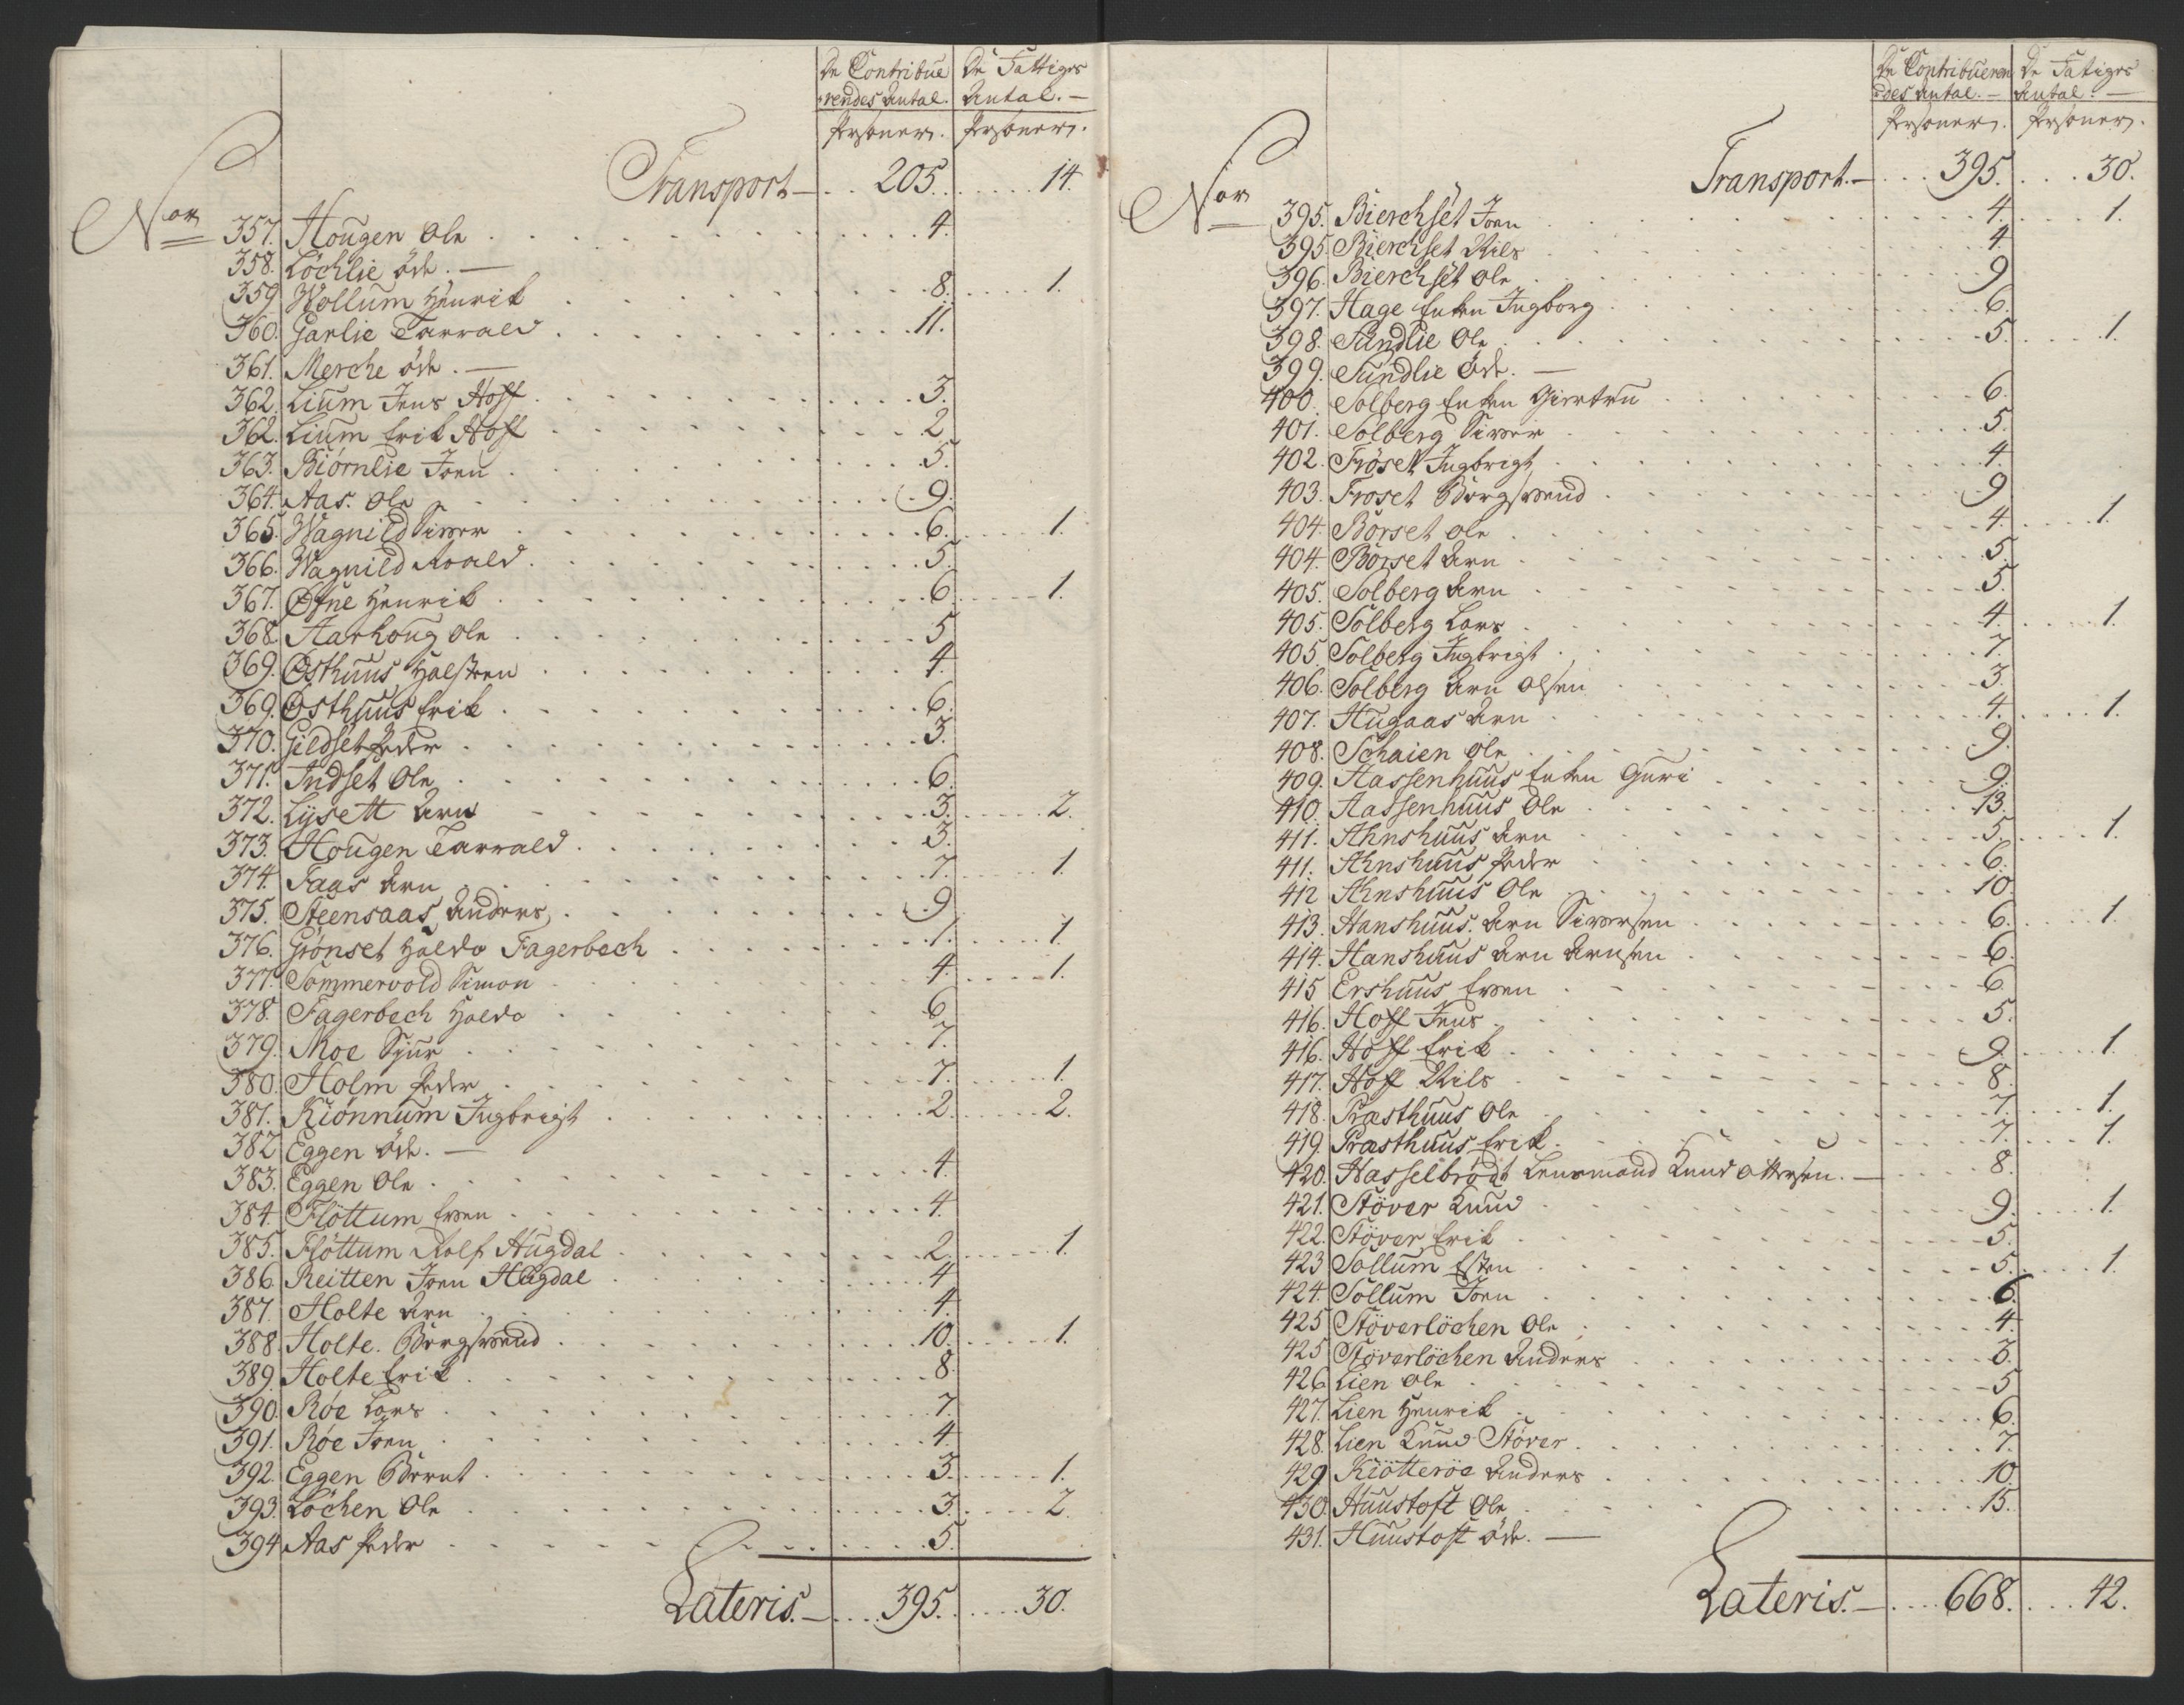 De Contribue De Fattiges
rendes Antal. Antal. —
Persóner. Persóner.
Transport — 205. 14.
Nor
357. Hougen Ole 4.
358. Löchlie öde. —
359 Wollum Henrik 8. 1.
360. Garlie Tarrald 11.
361. Merche öde. —
362. Lium Jens Hoff 3.
362. Lium Erik Hoff 2
363. Biörnlie Joen 5.
364. Aas. Ole 9.
365. Wagnild Siver 6. 1.
366. Wagnild Roald 5.
367. Øfne Henrik 6 1.
368. Aarhoug Ole 5
369. Østhuus Halsteen 4.
369. Østhuus Erik 6.
370. Gildset Peder 3.
371. Indset Ole 6
372. Lysett Arn 3. 2.
373. Hougen Tarrald 3.
374. Faas Arn 7. 1.
375. Steensaas Anders 9
376. Grönset Haldo Fagerbech 1. 1.
377. Sommervold Simon 4. 1.
378. Fagerbech Haldo 6
379. Moe Sjur 7.
380. Holm Peder 7. 1.
381. Kiönnum Ingbrigt 2. 2.
382 Eggen öde. —
383. Eggen Ole 4.
384. Flöttum Even 4.
385. Flöttum Rolf Hugdal 2. 1.
386. Reitten Joen Hugdal 4
387. Holte Arn 4.
388. Holte. Børgsvend 10. 1.
389. Holte Erik 8.
390. Röe Lars 7.
391. Röe Joen 4.
392. Eggen Bernt 3. 1.
393. Löchen Ole 3. 2.
394. Aas Peder 5.
Lateris. — 395. 30.
De Contribueren De Fatiges
des Antal. — Antal. —
Persöner. Persöner.
Transport. — 395. 30.
Nor
395. Bierchset Joen 4. 1.
395. Bierchset Nils 4
396. Bierchset Ole 9
397. Hage Enken Ingborg 6.
398. Sundlie Ole 5. 1.
399. Sundlie Öde. —
400. Solberg Enken Giertru 6.
401. Solberg Siver 5.
402. Fröset Ingbrigt 4.
403. Froset Børgsvend 9
404. Börset Ole 4. 1.
404. Börset Arn 5.
405. Solberg Arn 5.
405. Solberg Lars 4. 1.
405. Solberg Ingbrigt 7.
406. Solberg Arn Olsen 3
407. Hugaas Arn 4. 1.
408. Schaien Ole 9.
409. Aassenhuus Enken Guri 9.
410. Aassenhuus Ole 13.
411. Ahnshuus Arn 5. 1.
411. Ahnshuus Peder 6.
412 Ahnshuus Ole 10
413. Hanshuus. Arn Siversen 6. 1.
414. Hanshuus Arn Arnsen 6.
415 Ershuus Even 6
416. Hoff Jens 5.
416. Hoff Erik 9. 1.
417. Hoff Nils 8.
418. Præsthuus Ole 7. 1.
419. Præsthuus Erik 7. 1.
420. Hasselbrödt Lensmand Knud Ottersen. — 8.
421. Stöver Knud 9. 1.
422. Stöver Erik 5.
423 Sollum Esten 5. 1.
424. Sollum Joen 6.
425 Stöverlöchen Ole 4.
425 Stöverlöchen Anders 3.
426 Lien Ole 5
427. Lien Henrik 6.
428. Lien Knud Stöver 7.
429 Kiötteröe Anders 10.
430. Huustoft Ole 15.
431. Huustoft öde. —
Lateris. — 668. 42.